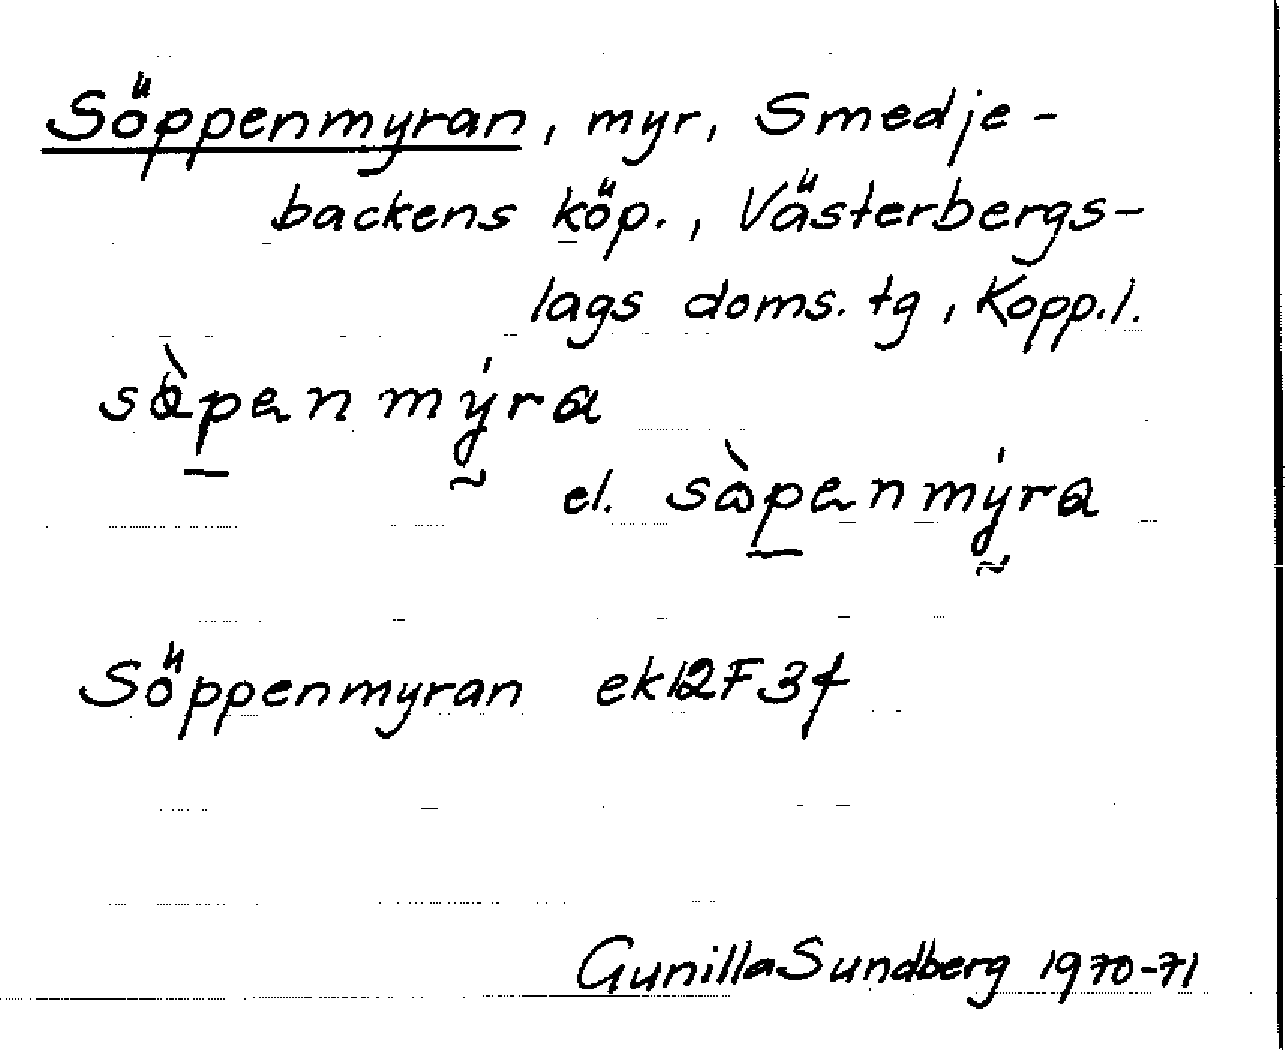 Söppenmyran, myr, Smedje-
backens köp., Västerbergs-
lags doms. tg, Kopp.l.
sàpenmýra
el. sòpenmýra
Söppenmyran ek12F3f
Gunilla Sundberg 1970-71